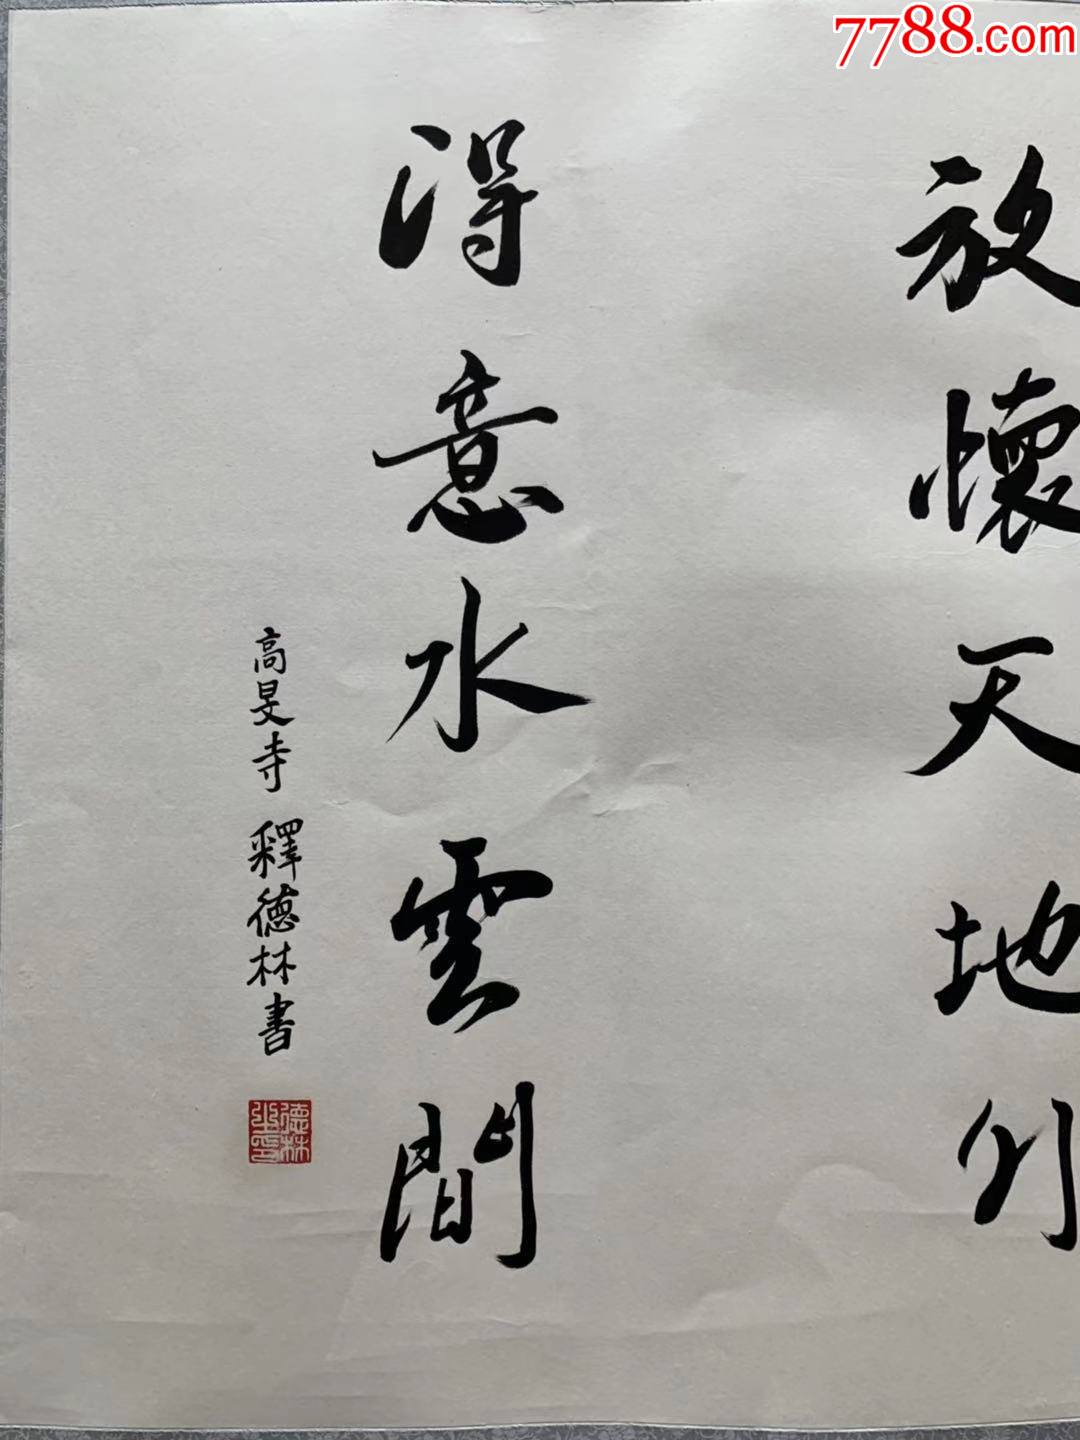 7788.com
放懷天地外
得意水雲間
高旻寺 釋德林書
德林之印